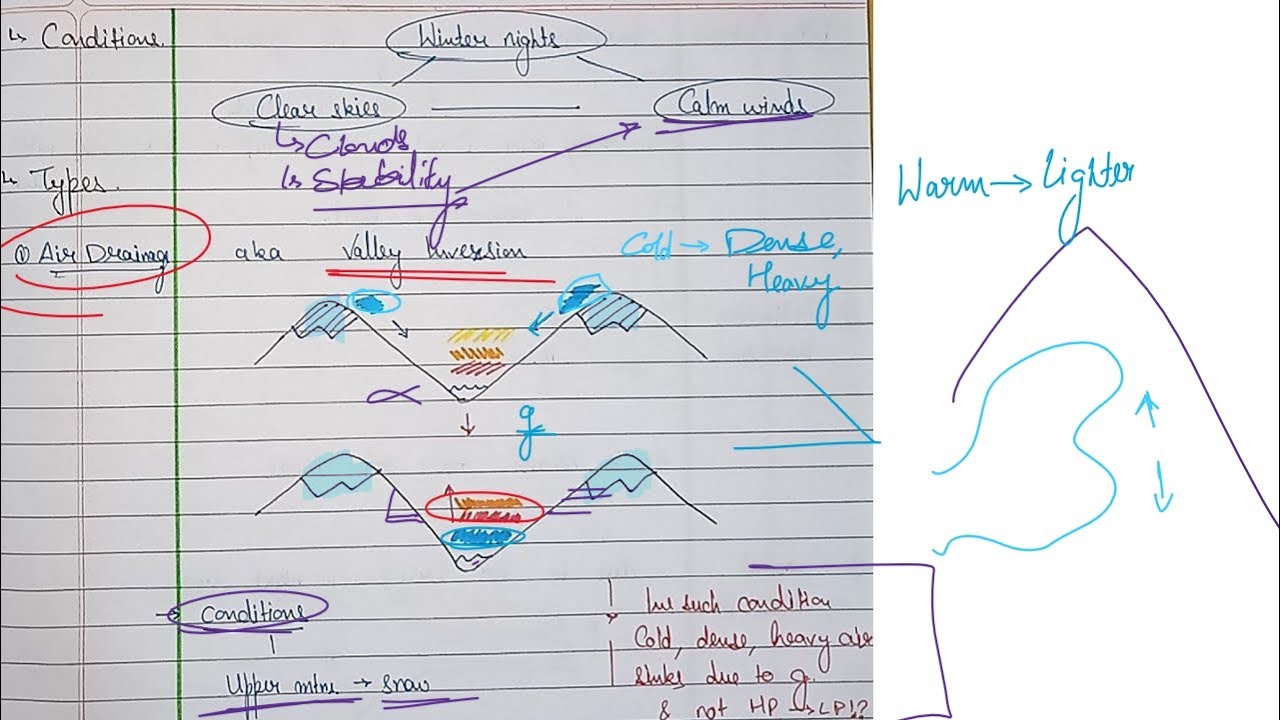 ↳ Conditions.
Winter nights
Clear skies
Calm winds
↳ Clouds
↳ Stability
↳ Types.
Warm → lighter
① Air Drainage aka Valley Inversion
Cold → Dense,
Heavy
α
g
→ Conditions
Upper mtns → snow
In such condition
Cold, dense, heavy air
sinks due to g.
& not HP → LP!?